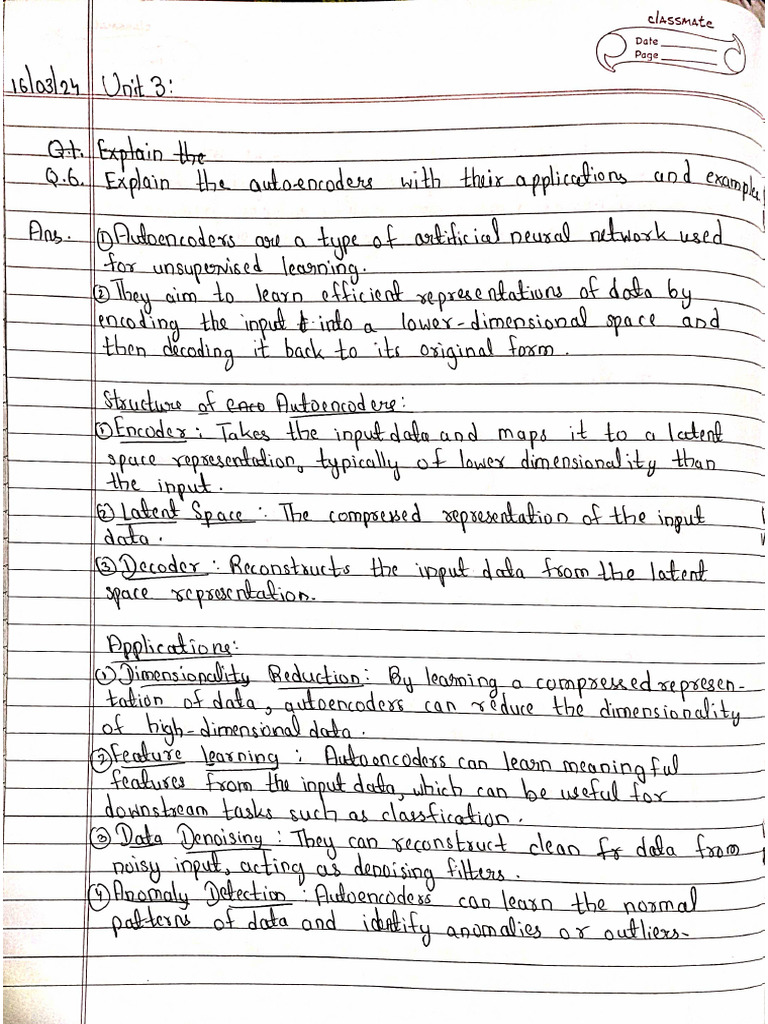 classmate
Date
Page
16/03/24 Unit 3:
Q.1. Explain the
Q.6. Explain the autoencoders with their applications and examples
Ans. ① Autoencoders are a type of artificial neural network used
for unsupervised learning.
② They aim to learn efficient representations of data by
encoding the input t into a lower-dimensional space and
then decoding it back to its original form.
Structure of enco Autoencoders:
① Encoder: Takes the input data and maps it to a latent
space representation, typically of lower dimensionality than
the input.
② Latent Space: The compressed representation of the input
data.
③ Decoder: Reconstructs the input data from the latent
space representation.
Applications:
① Dimensionality Reduction: By learning a compressed represen-
tation of data, autoencoders can reduce the dimensionality
of high-dimensional data.
② Feature learning: Autoencoders can learn meaningful
features from the input data, which can be useful for
downstream tasks such as classfication.
③ Data Denoising: They can reconstruct clean fr data from
noisy input, acting as denoising filters.
④ Anomaly Detection: Autoencoders can learn the normal
patterns of data and identify anomalies or outliers-